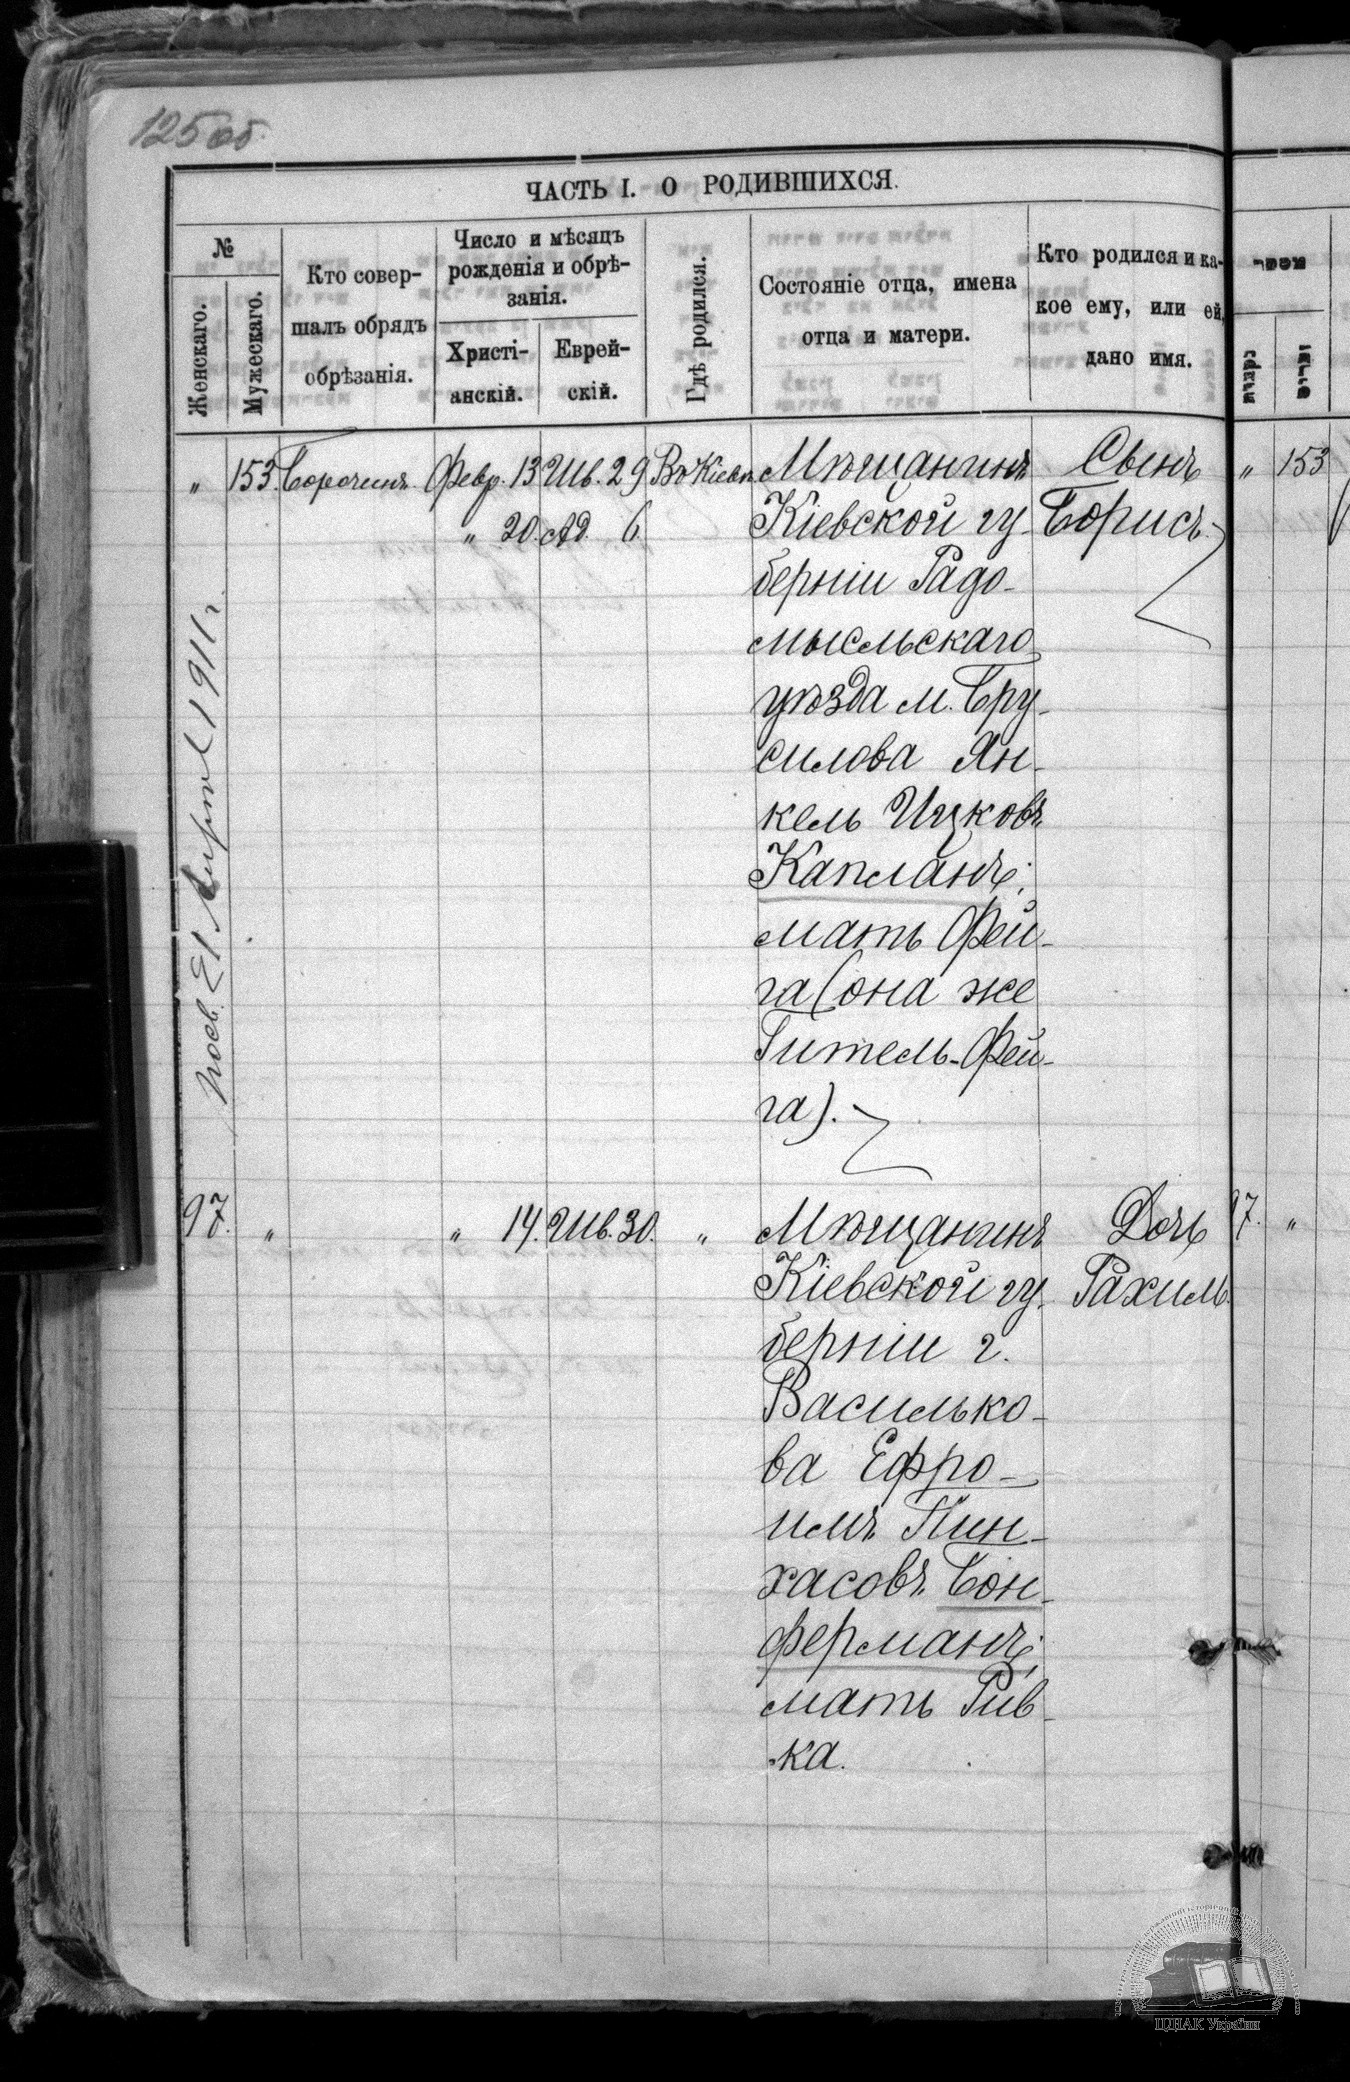 125 об.
ЧАСТЬ I. О РОДИВШИХСЯ.
№
Женскаго.
Мужескаго.
Кто совер-
шалъ обрядъ
обрѣзанія.
Число и мѣсяцъ
рожденія и обрѣ-
занія.
Христі-
анскій.
Еврей-
скій.
Гдѣ родился.
Состояніе отца, имена
отца и матери.
Кто родился и ка-
кое ему, или ей,
дано имя.
" 153. Февр. 13 Шв. 29 Въ Кіевѣ
" 20. Ад. 6.
Мѣщанинъ
Кіевской гу-
берніи Радо-
мысльскаго
уѣзда м. Бру-
силова Ян-
кель Ицковъ
Капланъ;
мать Фей-
га (она же
Гитель-Фей-
га).
Сынъ
Борисъ.
" 153
1911 г.
97. " " 14. Шв. 30. "
Мѣщанинъ
Кіевской гу-
берніи г.
Василько-
ва Ефро-
имъ Пин-
хасовъ Бон-
ферманъ;
мать Рив-
ка.
Дочь
Рахиль.
97. "
נקבות
זכרים
ЦДІАК України